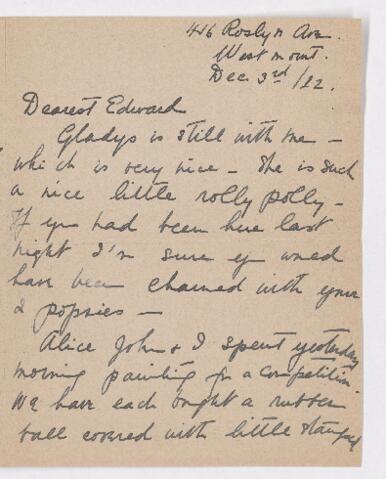 416 Roslyn Ave.
Westmount.
Dec. 3rd /12.
Dearest Edward
Gladys is still with me –
which is very nice – She is such
a nice little rolly polly –
If you had been here last
night I'm sure you would
have been charmed with your
2 popsies –
Alice John & I spent yesterday
morning painting for a competition.
We have each bought a rubber
ball covered with little